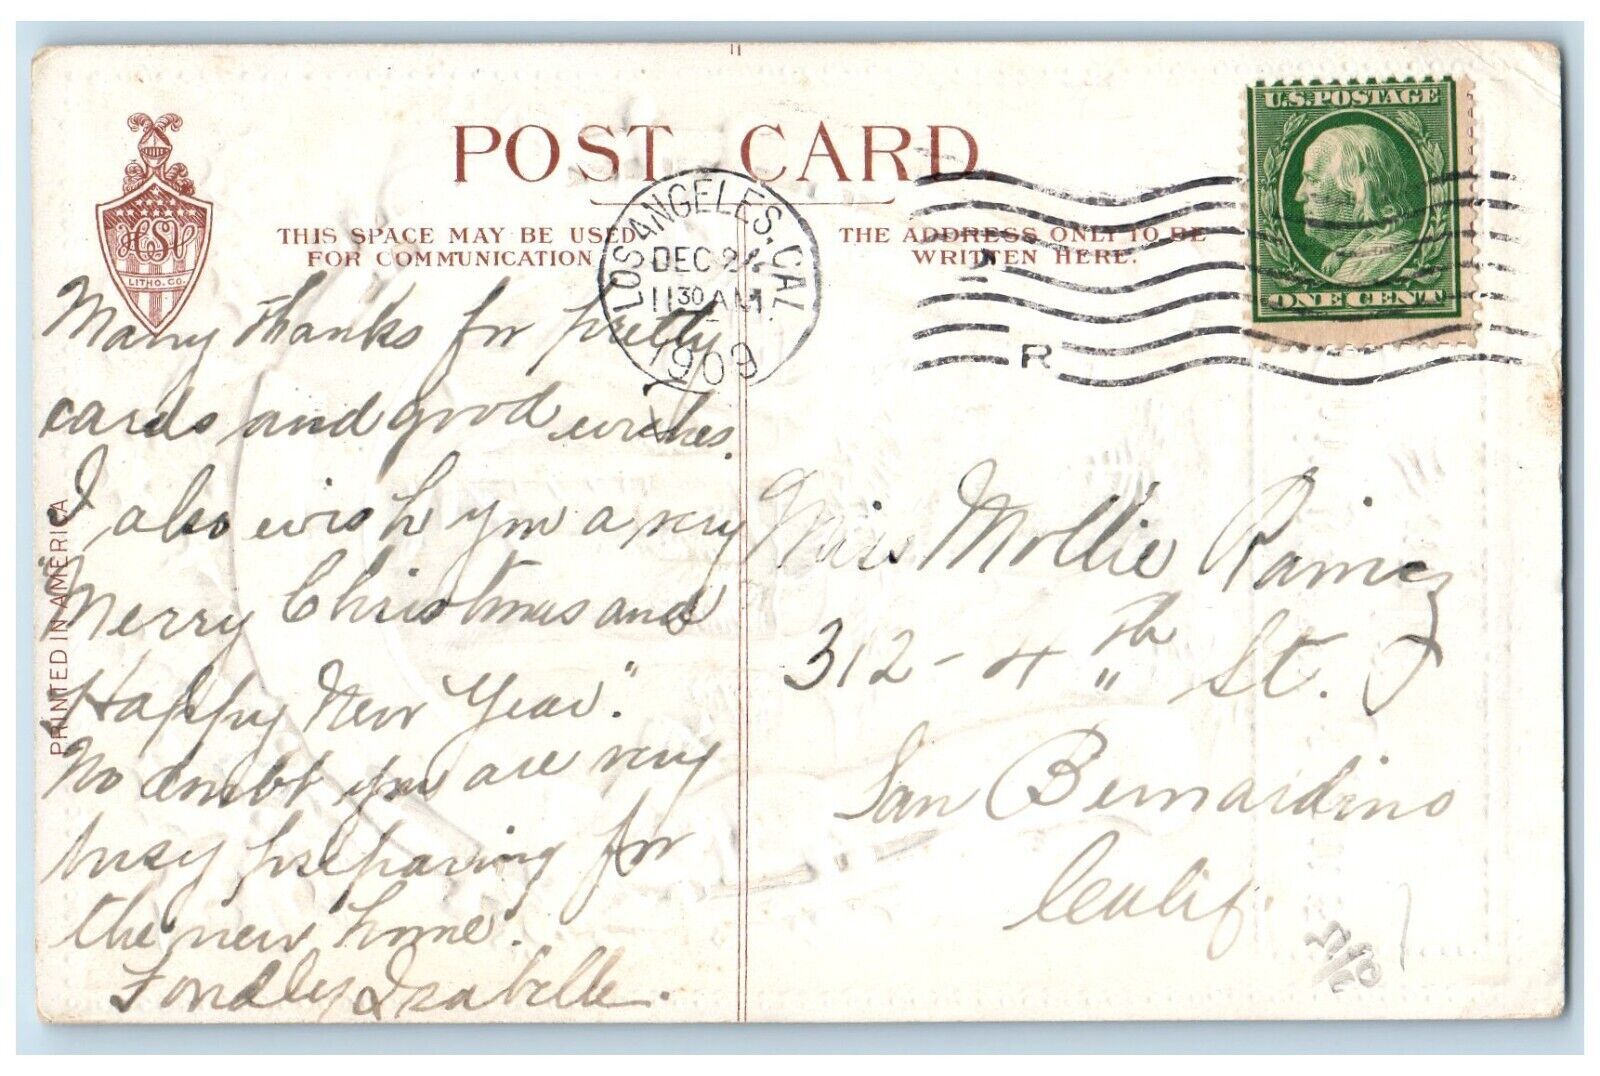 POST CARD.
U.S. POSTAGE
ONE CENT
THIS SPACE MAY BE USED
FOR COMMUNICATION
THE ADDRESS ONLY TO BE
WRITTEN HERE.
LOS ANGELES, CAL.
DEC 24
11 30 AM
1909
R
HSV
LITHO. CO.
PRINTED IN AMERICA
Many thanks for pretty
cards and good wishes.
I also wish you a very
"Merry Christmas and
Happy New Year".
No doubt you are very
busy preparing for
the new home.
Fondly, Isabelle.
Miss Mollie Ramiez
312 - 4th St.
San Bernardino
Calif.